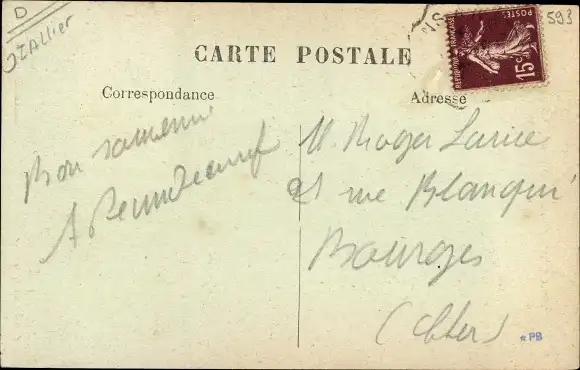 D
Allier
593
POSTES
REPUBLIQUE FRANCAISE
15c
CARTE POSTALE
Correspondance
Adresse
Bon souvenir
M. Roger
21 rue Blanqui
Bourges
(Cher)
*PB